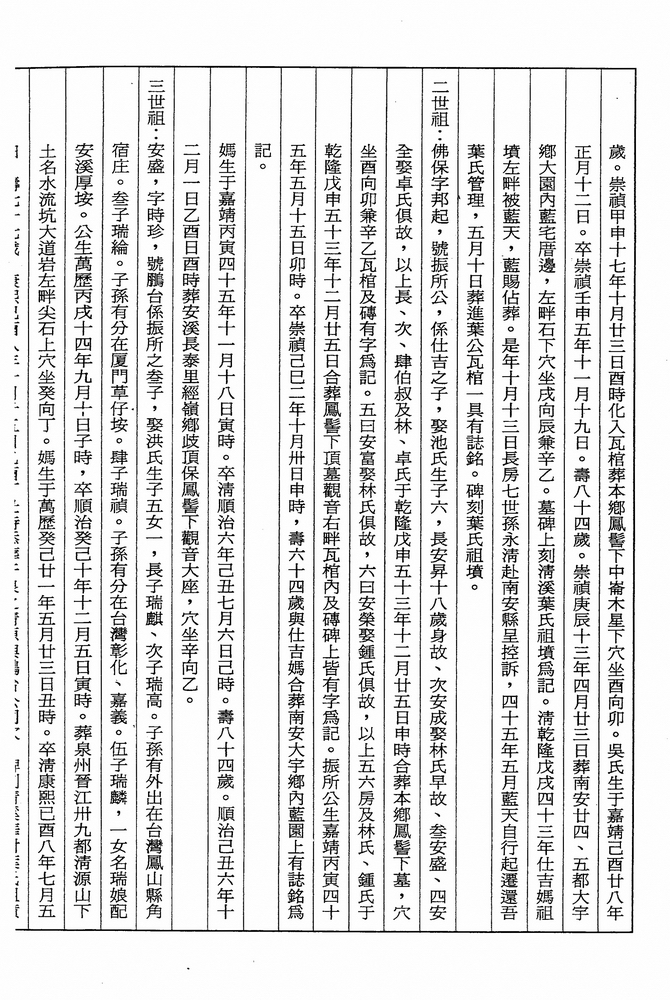 歲。崇禎甲申十七年十月廿三日酉時化入瓦棺葬本鄉鳳髻下中崙木星下穴坐酉向卯。吳氏生于嘉靖己酉廿八年
正月十二日。卒崇禎壬申五年十一月十九日。壽八十四歲。崇禎庚辰十三年四月廿三日葬南安廿四、五都大宇
鄉大園內藍宅厝邊，左畔石下穴坐戌向辰兼辛乙。墓碑上刻清溪葉氏祖墳為記。清乾隆戊戌四十三年仕吉媽祖
墳左畔被藍天，藍賜佔葬。是年十月十三日長房七世孫永清赴南安縣呈控訴，四十五年五月藍天自行起遷還吾
葉氏管理，五月十日葬進葉公瓦棺一具有誌銘。碑刻葉氏祖墳。
二世祖：佛保字邦起，號振所公，係仕吉之子，娶池氏生子六，長安昇十八歲身故、次安成娶林氏早故、叁安盛、四安
全娶卓氏俱故，以上長、次、肆伯叔及林、卓氏于乾隆戊申五十三年十二月廿五日申時合葬本鄉鳳髻下墓，穴
坐酉向卯兼辛乙瓦棺及磚有字為記。五曰安富娶林氏俱故，六曰安榮娶鍾氏俱故，以上五六房及林氏、鍾氏于
乾隆戊申五十三年十二月廿五日合葬鳳髻下頂墓觀音右畔瓦棺內及磚碑上皆有字為記。振所公生嘉靖丙寅四十
五年五月十五日卯時。卒崇禎己巳二年十月卅日申時，壽六十四歲與仕吉媽合葬南安大宇鄉內藍園上有誌銘為
記。
媽生于嘉靖丙寅四十五年十一月十八日寅時。卒清順治六年己丑七月六日己時。壽八十四歲。順治己丑六年十
二月一日乙酉日酉時葬安溪長泰里經嶺鄉歧頂保鳳髻下觀音大座，穴坐辛向乙。
三世祖：安盛，字時珍，號鵬台係振所之叁子，娶洪氏生子五女一，長子瑞麒、次子瑞高。子孫有外出在台灣鳳山縣角
宿庄。叁子瑞綸。子孫有分在厦門草仔垵。肆子瑞禎。子孫有分在台灣彰化、嘉義。伍子瑞麟，一女名瑞娘配
安溪厚垵。公生萬歷丙戌十四年九月十日子時，卒順治癸己十年十二月五日寅時。葬泉州晉江卅九都清源山下
土名水流坑大道岩左畔尖石上穴坐癸向丁。媽生于萬歷癸己廿一年五月廿三日丑時。卒清康熙已酉八年七月五